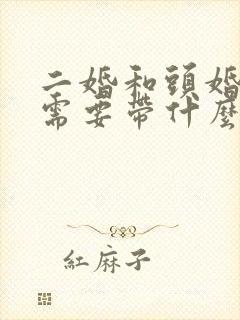 二婚和頭婚
需要帶什麼
紅麻子